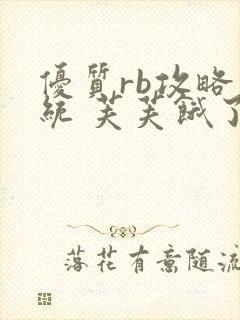 優質rb攻略
統 芙芙餓了
落花有意随流